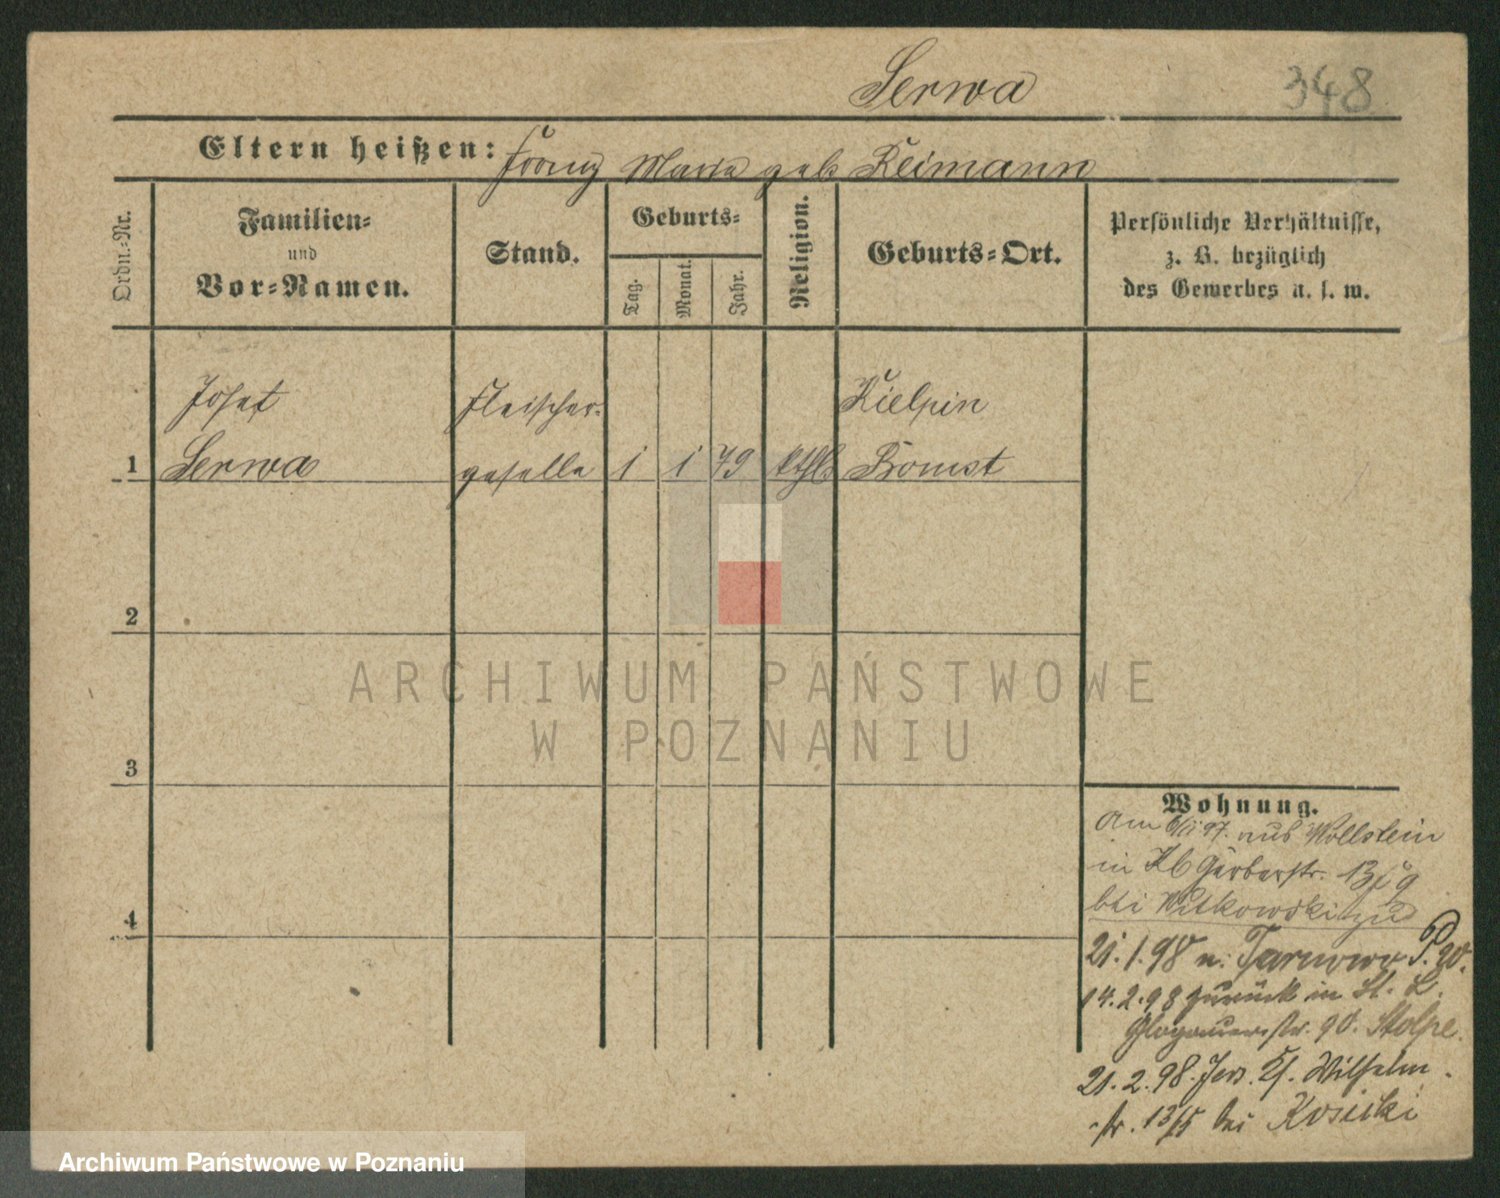 Serwa
348
Eltern heißen: Franz Maria geb Reimann
Ordn.-Nr.
Familien-
und
Vor-Namen.
Stand.
Geburts-
Tag.
Monat.
Jahr.
Religion.
Geburts-Ort.
Persönliche Verhältnisse,
z. B. bezüglich
des Gewerbes u. s. w.
Josef
Serwa
Fleischer-
geselle
1
1
1
79
kthl
Kielpin
Bomst
2
3
4
Wohnung.
am 97. aus Wollstein
in Gerberstr.
bei Witkowski
21.1.98 n. Tarnowo P. W.
14.2.98 zurück in St. L.
Glogauerstr. 90. Stolpe.
21.2.98. Jers. Wilhelm-
str. 13/15 bei Kosicki
ARCHIWUM PAŃSTWOWE
W POZNANIU
Archiwum Państwowe w Poznaniu